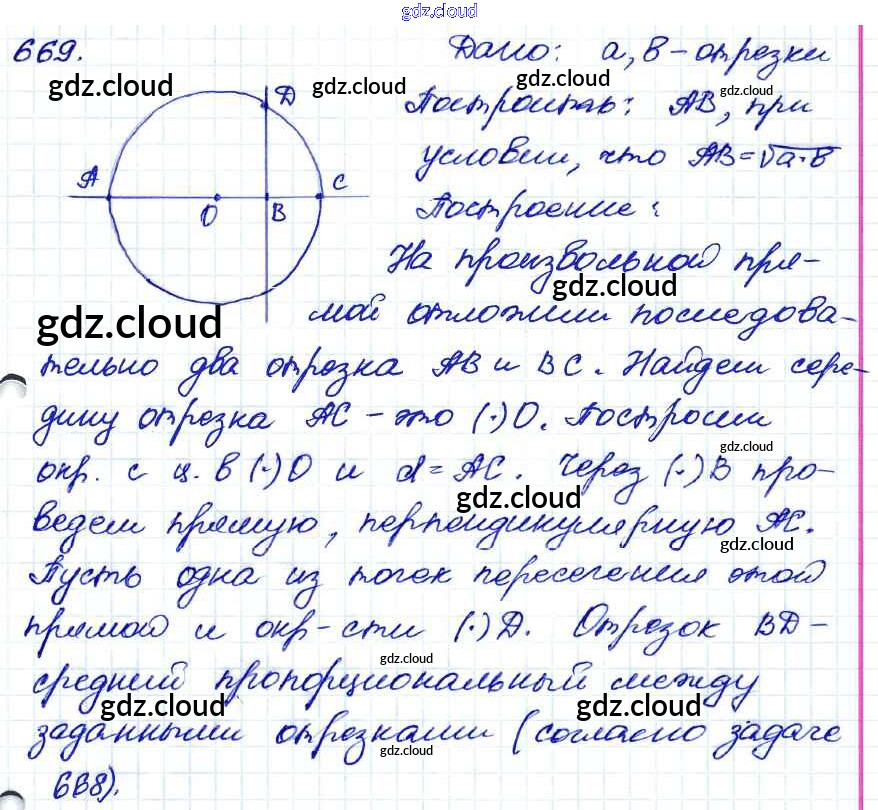 gdz.cloud
669.
Дано: а, в – отрезки
gdz.cloud gdz.cloud gdz.cloud
Построить: АВ, при
условии, что АВ = √а·в
А D О В С
Построение:
На произвольной пря-
gdz.cloud
мой отложим последова-
gdz.cloud
тельно два отрезка АВ и ВС. Найдем сере-
дину отрезка АС – это (·) О. Построим
gdz.cloud
окр. с ц. в (·) О и d = АС. Через (·) В про-
gdz.cloud
ведем прямую, перпендикулярную АС.
gdz.cloud
Пусть одна из точек пересечения этой
прямой и окр-сти (·) D. Отрезок ВD –
gdz.cloud
средний пропорциональный между
gdz.cloud gdz.cloud
заданными отрезками (согласно задаче
gdz.cloud
668).